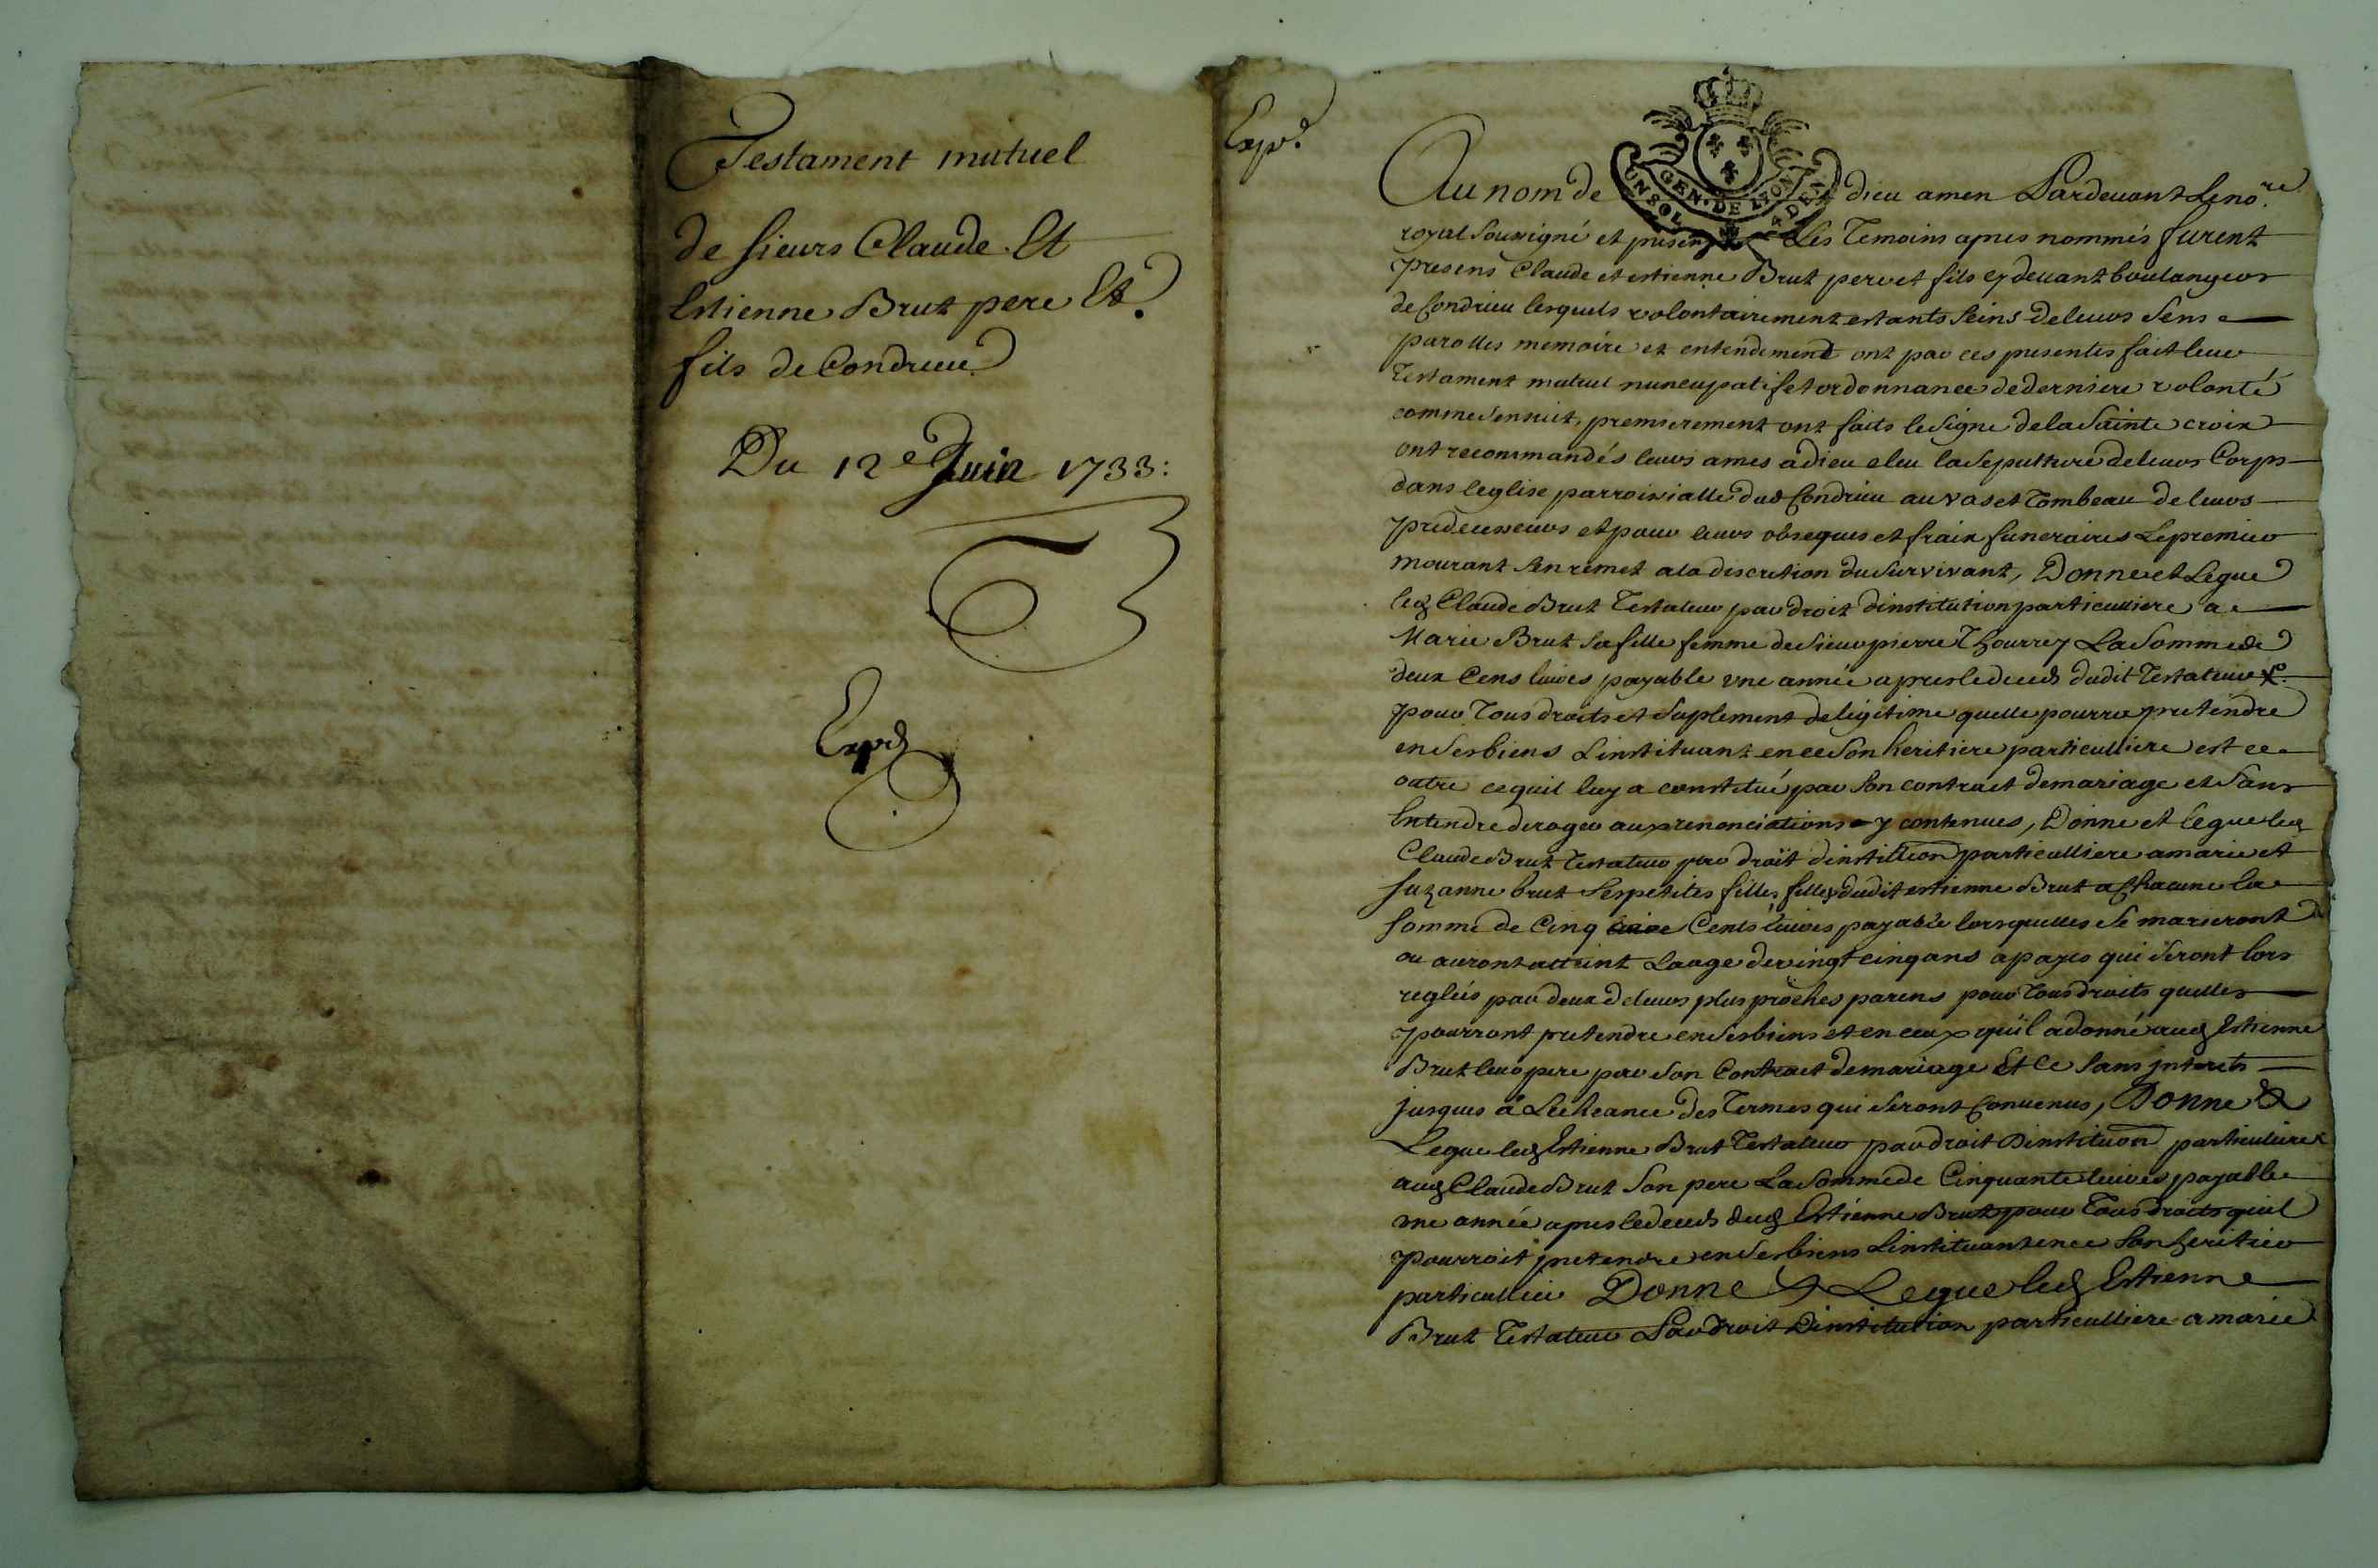 Testament mutuel
de sieurs Claude Et
Estienne Brut pere Et
fils de Condrieu
Du 12e Juin 1733:
Expd
Expd
GEN. DE LYON
UN SOL 4 DEN.
Au nom de dieu amen Pardevant le no.re
royal soussigné et presens Les Temoins apres nommés furent
presens Claude et estienne Brut pere et fils cy devant boulangers
de Condrieu lesquels volontairement estants seins de leurs sens
parolles memoire et entendement ont par ces presentes fait leur
Testament mutuel nuncupatif et ordonnance de derniere volonté
comme sensuit, premierement ont faits le signe de la sainte croix
ont recommandés leurs ames a dieu eleu la sepulture de leurs Corps
dans leglise parroissialle dud Condrieu au vas et Tombeau de leurs
predecesseurs et pour leurs obseques et fraix funeraires Le premier
mourant sen remet a la discretion du survivant, Donne et Legue
led Claude Brut Testateur par droit dinstitution particulliere a
Marie Brut sa fille femme de sieur pierre Thourrey La somme de
deux Cens livres payable une année apres le deces dudit Testateur
pour Tous droits et suplement de legitime quelle pourra pretendre
en ses biens Linstituant en ce son heritiere particulliere est ce
outre ce quil luy a constitué par son contract de mariage et sans
Entendre deroger aux renonciations y contenues, Donne et legue led
Claude Brut Testateur par droit dinstituon particulliere a marie et
suzanne brut ses petites filles filles dudit estienne Brut a Chacune la
somme de Cinq Cents livres payable lorsquelles se marieront
ou auront atteint Laage de vingt cinq ans a payes qui seront lors
reglées par deux de leurs plus proches parens pour Tous droits quelles
pourront pretendre en ses biens et en ceux quil a donné aud Estienne
Brut leur pere par son Contract de mariage Et Ce sans interets
jusques a Lecheance des Termes qui seront Convenus, Donne &
Legue led Estienne Brut Testateur par droit Dinstituon particuliere
aud Claude Brut son pere La somme de Cinquante livres payable
une année apres le deces dud Estienne Brut pour Tous droits quil
pourroit pretendre en ses biens Linstituant en ce son heritier
particullier Donne & Legue led Estienne
Brut Testateur Par droit Dinstitution particulliere a marie